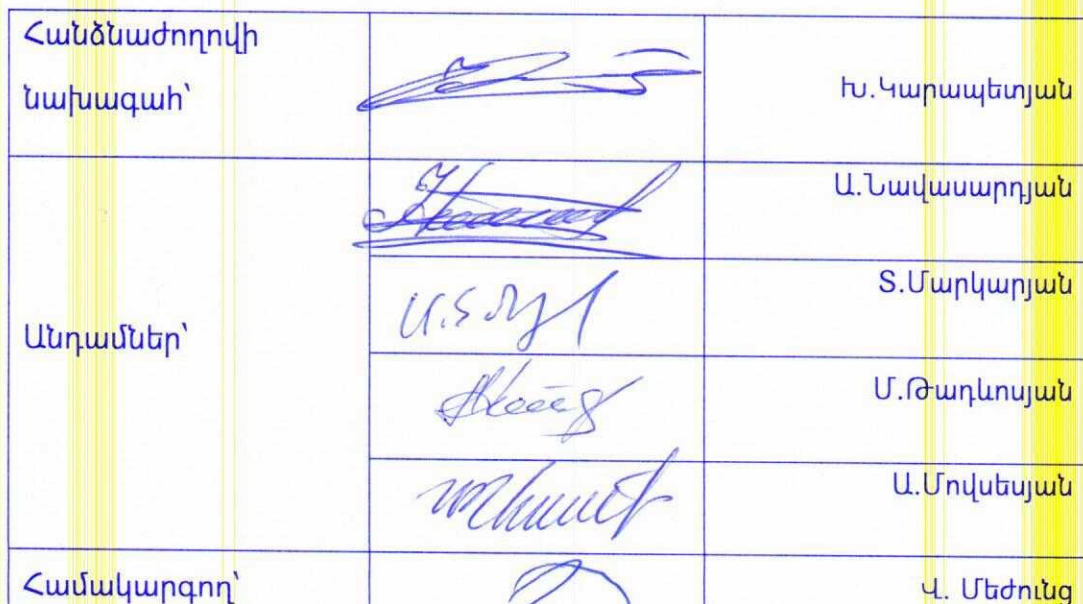 Հանձնաժողովի
նախագահ՝
Խ.Կարապետյան
Ա.Նավասարդյան
Տ.Մարկարյան
Անդամներ՝
Մ.Թադևոսյան
Ա.Մովսեսյան
Համակարգող՝
Վ. Մեժունց